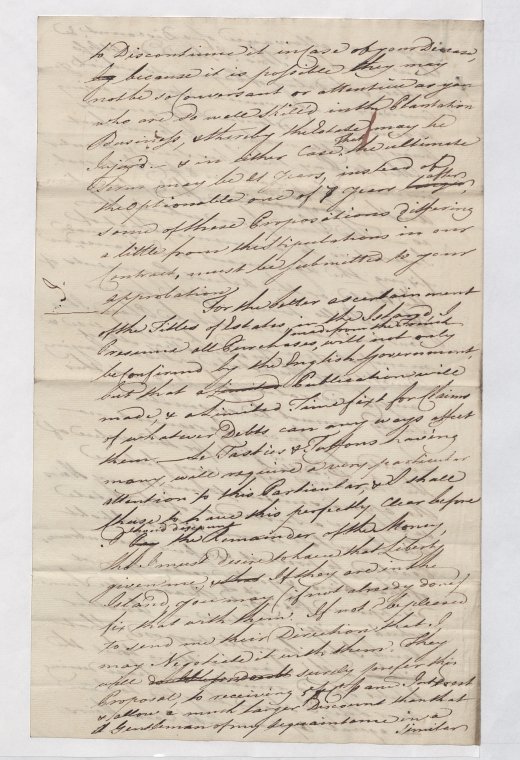 to Discontinue it in case of your Decease,
because it is possible they may
not be so conversant or attentive as you
who are so well skilled in the Plantation
Business, & thereby the Estate may be
Injured. & in either Case, that the ultimate
Term may be 21 years, instead of
the optionable one of 7 years after
some of those Propositions differing
a little from the Stipulations in our
Contract, must be submitted to your
approbation
For the better ascertainment
of the Titles of Estates in the Island I
Presume all Purchases from the French will not only
be confirmed by the English Government,
but that a limited Publication will
made, & a limited Time fixt for Claims
of whatever Debts can any ways affect
them. Le Tasties & Juffrons having
many, will require a very particular
attention to this Particular, & I shall
chuse to have this perfectly clear before
I should discount the Remainder of the Money,
tho I must desire to have that Liberty
given me, If they are in the
Island, you may (if not already done)
fix that with them. If not be pleased
to send me their Direction that I
may Negotiate it with them. They
will surely prefer this
Proposal, to receiving 5 P C P ann Interest
& allow a much larger Discount than that
A Gentleman of my acquaintance in a
Similar